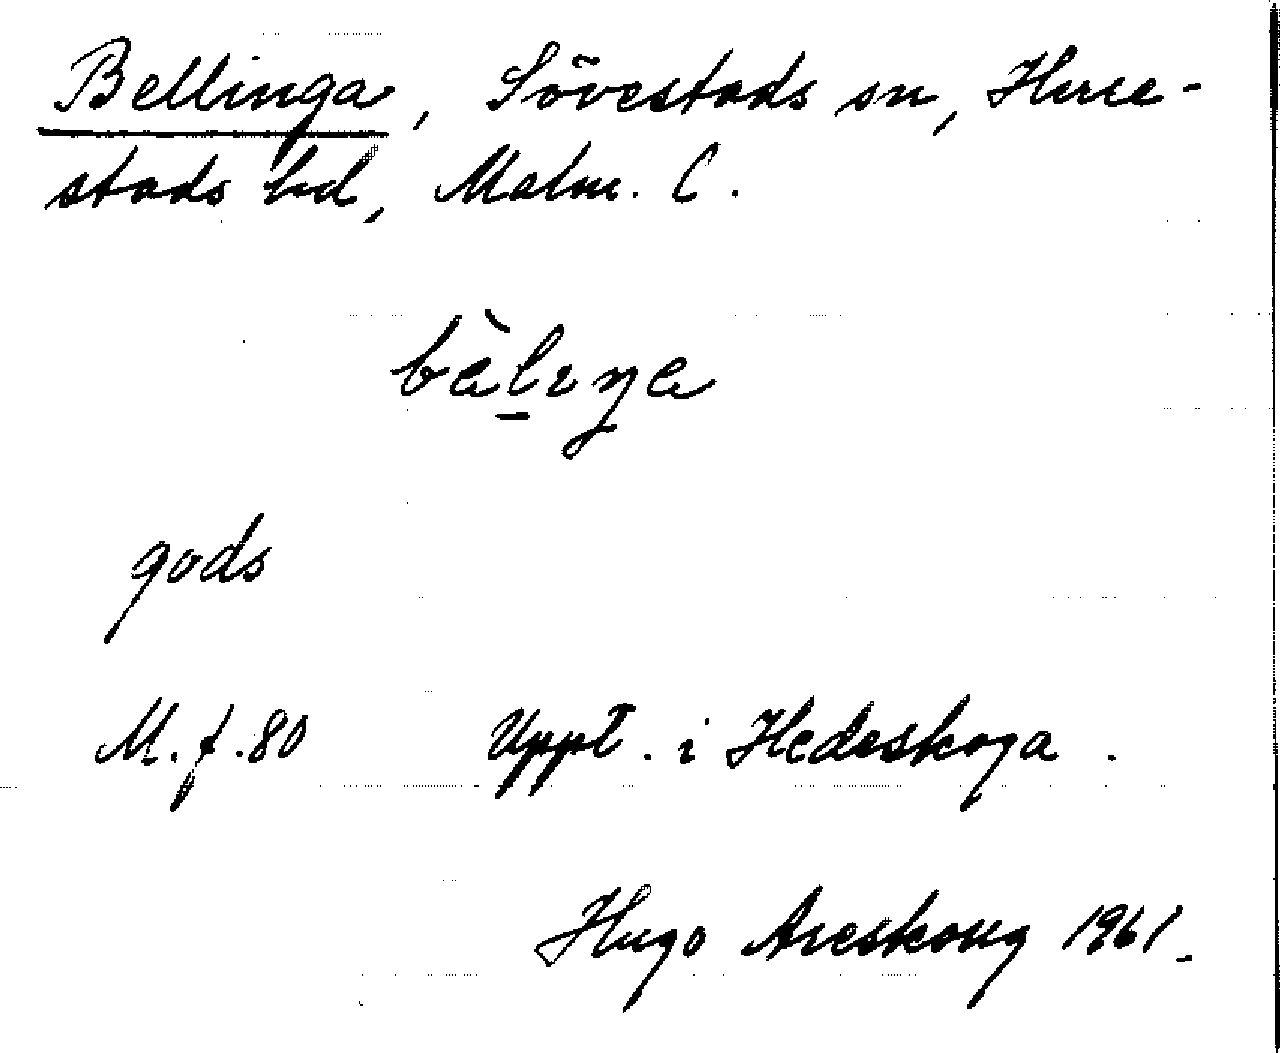 Bellinga, Sövestads sn, Herre-
stads hd, Malm. l.
bæ̀lɪŋa
gods
M. f. 80 Uppt. i Hedeskoga.
Hugo Areskoug 1961.